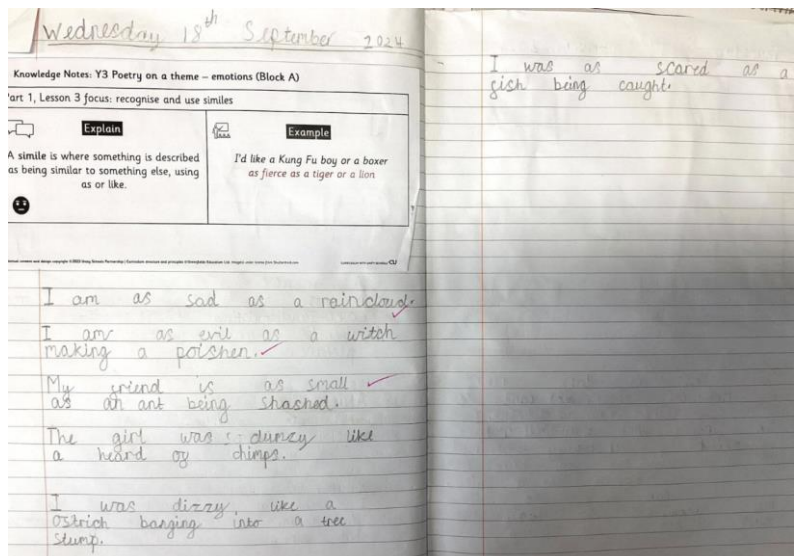 Wednesday 18th September 2024
Knowledge Notes: Y3 Poetry on a theme – emotions (Block A)
Part 1, Lesson 3 focus: recognise and use similes
Explain
A simile is where something is described
as being similar to something else, using
as or like.
Example
I'd like a Kung Fu boy or a boxer
as fierce as a tiger or a lion
CU
I am as sad as a raincloud.
I am as evil as a witch
making a poishen.
My friend is as small
as an ant being shashed.
The girl was like
a heard of chimps.
I was dizzy like a
ostrich banging into a tree
stump.
I was as scared as a
fish being caught.